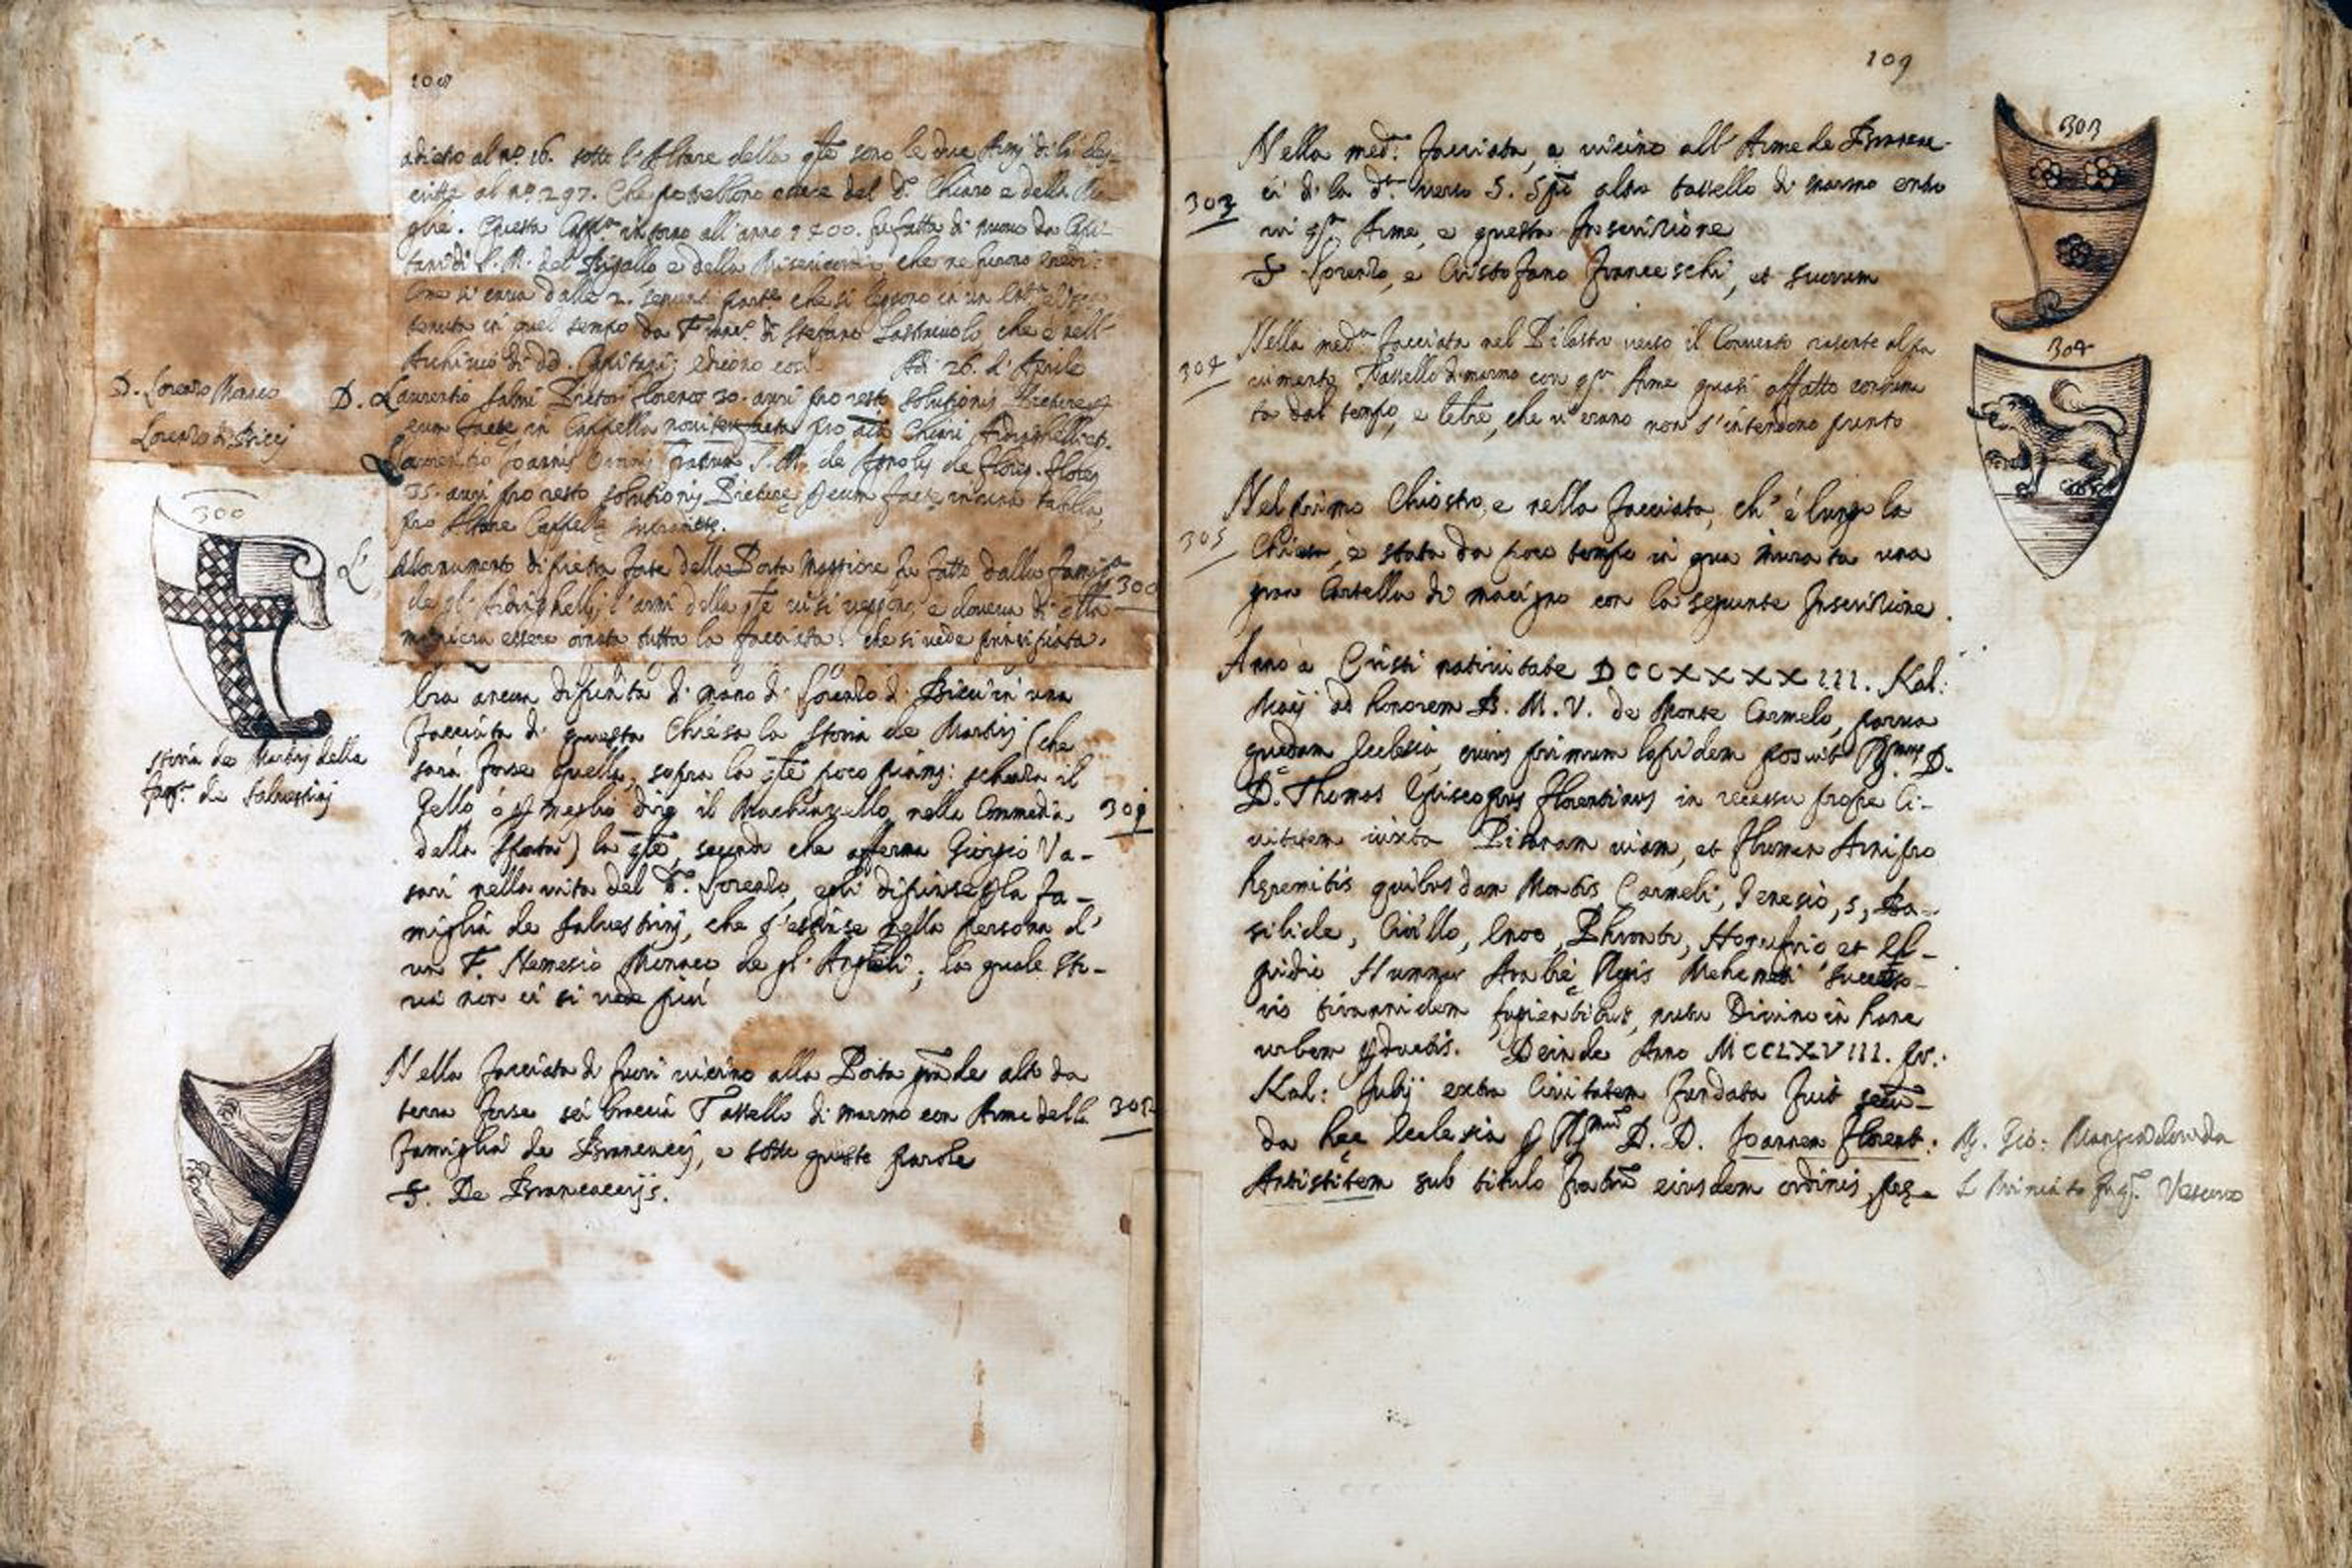 108
adietro al nº 16. sotto l'Altare della qte sono le due Armj di là des=
critte al nº 297. Che possono essere del dº Chiaro e della Mo=
glie. Questa Capp.ª intorno all'anno 1400. fu fatta di nuovo da Capi=
tani di S. M. del Bigallo e della Misericordia, che ne furono eredi:
Come si cava dalle 2. seguenti partte che si leggono in un
tenuta in quel tempo da Franc.º di Stefano Lastraiuolo, che è nell'
Archivio di dd. Capitanj; e dicono così. Adi 26. d'Aprile
D. Lorenzo Monaco
D. Laurentio Pictori floreno 30. auri pro resto solutionis Picture p
eum facte in Cappella noviter facta pro aīa Chiari Ardinghelli etc.
Lorenzo di Bicci
Laurentio Joannis S. M. de Agnolis de Flor. floren
35. auri pro resto solutionis Picture p eum facte in una tabula,
pro Altare Cappelle
300
L'
Adornamento di pietra fate della Porta Maggiore fu fatto dalla famigª
300
de gl' Ardinghellj; l'armi della qte vi si veggono, e doveva di
maniera essere ornata tutta la facciata: che si vede principiata.
Era ancora dipinta di mano di Lorenzo di Bicci in una
facciata di questa Chiesa la Storia de Martirj (che
storia de Martirj della
famª de Salvestrinj
sarà forse quella, sopra la qte poco pianj: scherza il
Gello ò p meglio dire il Machiavello nella Commedia
301
della Sporta) la qte, secondo che afferma Giorgio Va-
sari nella vita del dº Lorenzo, egli dipinse p la fa-
miglia de Salvestrinj, che s'estinse nella persona d'
un F. Nemesio Monaco de gl' Angeli; la quale Sto-
ria non ci si vede più
Nella facciata di fuori vicino alla Porta grāde alto da
terra forse sei braccia Tassello di marmo con Arme della
302
famiglia de Brancaccj, e sotto queste parole
S. De Brancaccijs.
109
303
Nella medª facciata, e vicino all' Arme de Brancac-
303
ci di là dª verso S. Spº altro tassello di marmo entro
vi qsª Arme, e questa Inscrizione
S. Lorenzo, e Cristofano Franceschi, et suorum
304
Nella medª facciata nel Pilastro verso il Convento rasente al pa
304
vimento Tassello di marmo con qsª Arme quasi affatto consuma
ta dal tempo, e letre, che v'erano non s'intendono punto
Nel primo Chiostro, e nella facciata, ch' è lungo la
305
Chiesa, è stata da poco tempo in qua murata una
gran Cartella di macigno con la seguente Inscrizione.
Anno à Cristi nativitate DCCXXXXIII. Kal:
Maij ad honorem B. M. V. de Monte Carmelo, parva
quedam Ecclesia, cuius primum lapidem posuit Rmus D.
D. Thomas Episcopus Florentinus in recessu prope Ci-
vitatem iuxta Pisanam viam, et Flumen Arni pro
heremitis quibusdam Montis Carmeli, Genesio, s, Ba-
silide, Cirillo, Enoc, Phronto, Honufrio, et El-
pidio Hummar Arabie Regis Mehemeti Successo-
ris tirannidem fugientibus, nutu Divino in hanc
urbem pductis. Deinde Anno MCCLXVIII. pr.:
Kal: Julij extra Civitatem fundata fuit secū-
da hec Ecclesia p Rmum D. D. Joannem Florent:
M. Gio: Mangiadori da
Antistitem sub titulo fratrū eiusdem ordinis, pre-
S. Miniato Vescovo